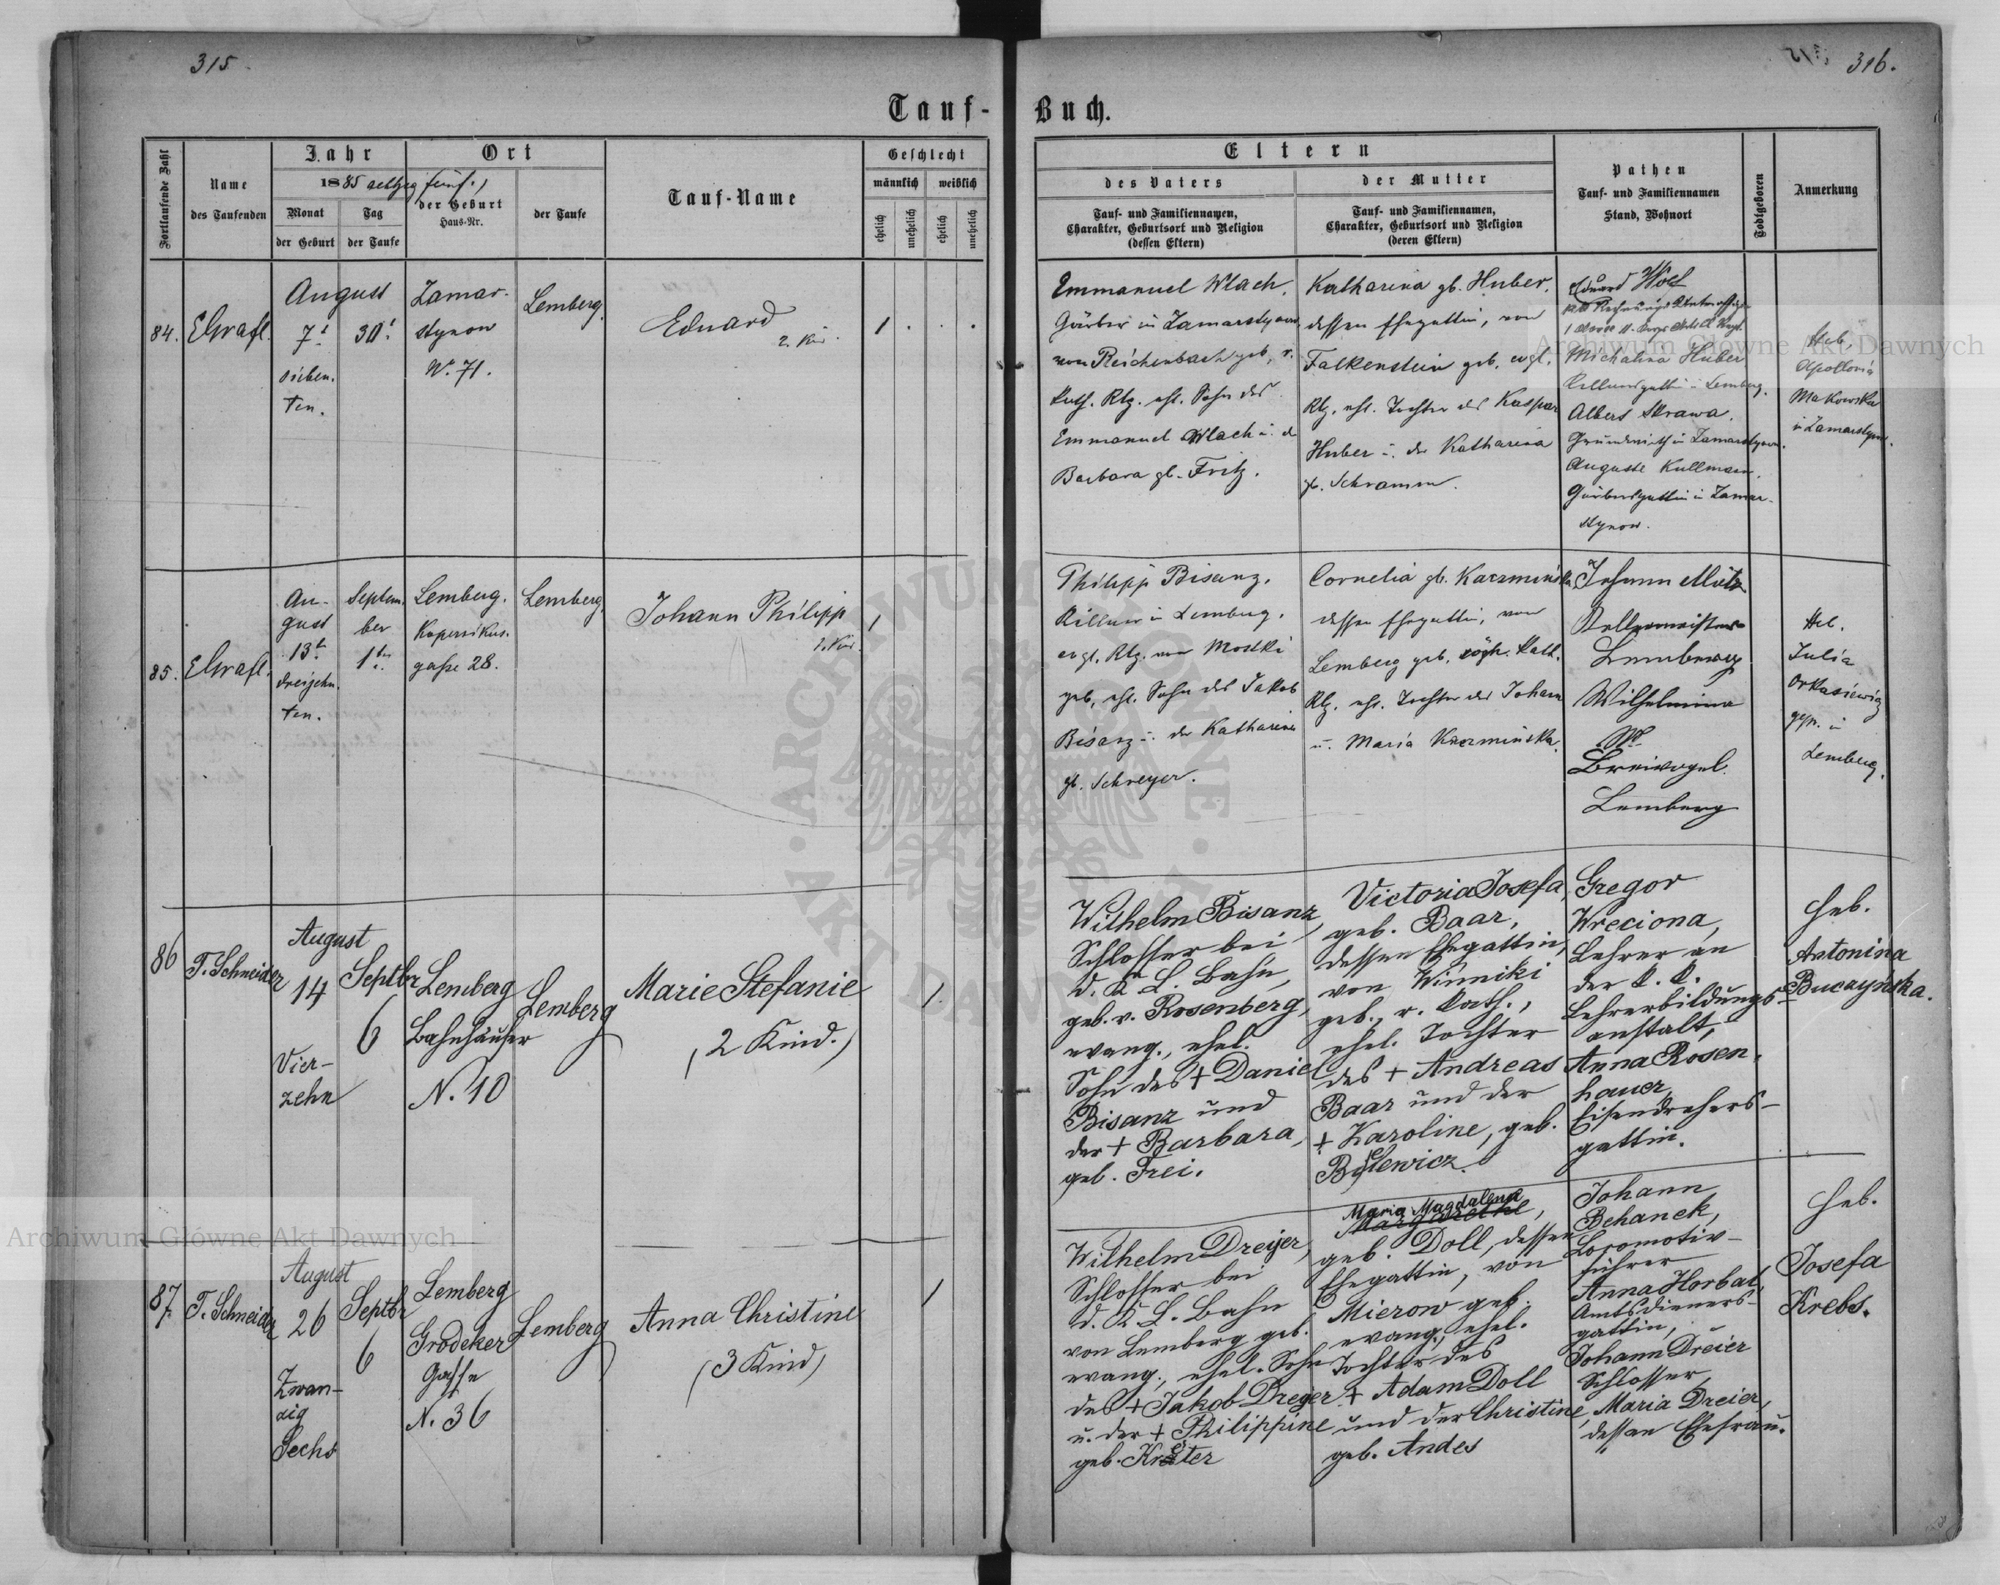 315.
316.
Tauf-
Buch.
Fortlaufende Zahl
Name
des Taufenden
Jahr
1885 achtzig fünf.
Monat
der Geburt
Tag
der Taufe
Ort
der Geburt
Haus-Nr.
der Taufe
Tauf-Name
Geschlecht
männlich
weiblich
ehelich
unehelich
ehelich
unehelich
Eltern
des Vaters
Tauf- und Familiennamen,
Charakter, Geburtsort und Religion
(dessen Eltern)
der Mutter
Tauf- und Familiennamen,
Charakter, Geburtsort und Religion
(deren Eltern)
Pathen
Tauf- und Familiennamen
Stand, Wohnort
Todtgeboren
Anmerkung
84.
August
7t
sieben.
ten.
30t
Zamar-
stynow
No. 71.
Lemberg.
Eduard
2. Kin.
1
Emmanuel Wlach,
Gärber in Zamarstynow
von Reichenbach geb, r.
kath. Rlg. ehl. Sohn des
Emmanuel Wlach u. d
Barbara gb. Fritz.
Katharina gb. Huber,
dessen Ehegattin, von
Falkenstein geb. evgl.
Rlg. ehl. Tochter des Kaspar
Huber u. der Katharina
gb. Schramm.
Eduard
Michalina Huber
in Lemberg.
Albert Skrawa.
Grundwirth in Zamarstynow.
Auguste Kullmann.
Gärbersgattin in Zamar-
stynow.
Heb.
Apollonia
Makowska
in Zamarstynow.
85.
Au-
gust
13t
dreizehn.
ten.
Septem.
ber
1ten
Lemberg.
Kopernikus.
gasse 28.
Lemberg.
Johann Philipp
1. Kin.
1
Philipp Bisanz.
Kellner in Lemberg.
evgl. Rlg. von Mostki
geb, ehl. Sohn des Jakob
Bisanz u. der Katharina
gb. Schreyer.
Cornelia gb. Kaczmińska
dessen Ehegattin, von
Lemberg geb. kath.
Rlg. ehl. Tochter des Johann
u. Maria Kaczmińska.
Johann
Lemberg
Wilhelmina
Breivogel.
Lemberg
Heb.
Julia
gasse in
Lemberg.
86
T. Schneider
August
14
Vier-
zehn
Septbr
6
Lemberg
Bahnhäuser
N. 10
Lemberg
Marie Stefanie
(2 Kind.)
1.
Wilhelm Bisanz,
Schlosser bei
d. K L. Bahn,
geb. v. Rosenberg,
evang., ehel.
Sohn des + Daniel
Bisanz und
der + Barbara,
geb. Frei.
Victoria Josefa,
geb. Baar,
dessen Ehegattin,
von Winniki
geb., r. kath.,
ehel. Tochter
des + Andreas
Baar und der
+ Karoline, geb.
Gregor
Wreciona,
Lehrer an
der k. k.
Lehrerbildungs-
anstalt,
Anna Rosen-
hauer,
Eisendrehers-
gattin.
Heb.
Antonina
Buczyńska.
87
T. Schneider
August
26
Zwan-
zig
Sechs
Septbr
6
Lemberg
Grodeker
Gasse
N. 36
Lemberg
Anna Christine
(3 Kind)
1
Wilhelm Dreyer,
Schlosser bei
d. K L. Bahn
von Lemberg geb.
evang., ehel. Sohn
des + Jakob Dreyer
u. der + Philippine
geb. Kräter
Maria Magdalena
Margarethe,
geb. Doll, dessen
Ehegattin, von
Mierow geb.
evang., ehel.
Tochter des
+ Adam Doll
und der Christine,
geb. Andes
Johann
Behanek,
Locomotiv-
führer
Anna Horbal,
Amtsdieners-
gattin,
Johann Dreier
Schlosser,
Maria Dreier,
dessen Ehefrau.
Heb.
Josefa
Krebs.
Archiwum Główne Akt Dawnych
Archiwum Główne Akt Dawnych
ARCHIWUM GŁÓWNE AKT DAWNYCH